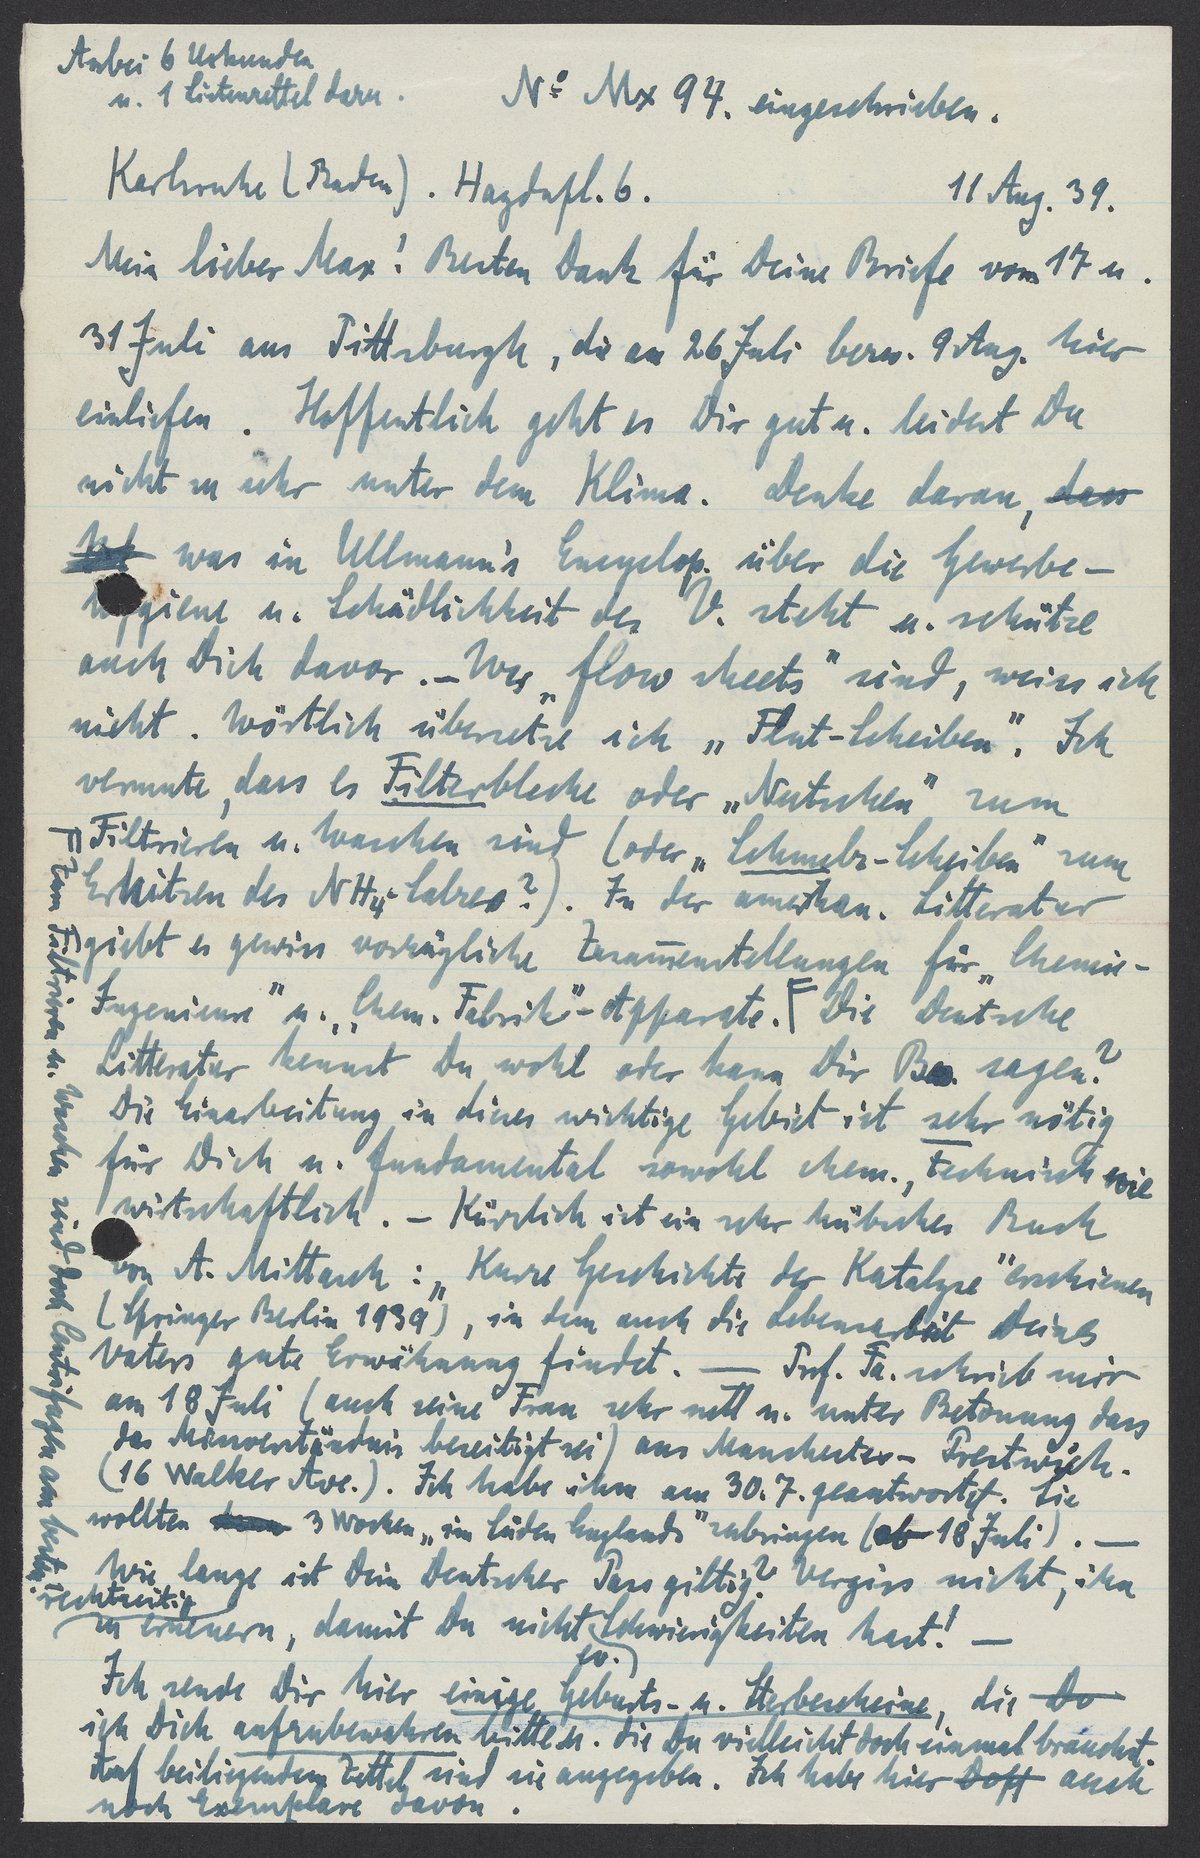 Anbei 6 Urkunden
u. 1 Listenzettel dazu.
No Mx 94. eingeschrieben.
Karlsruhe (Baden). Haydnpl. 6.
11 Aug. 39.
Mein lieber Max! Besten Dank für Deine Briefe vom 17 u.
31 Juli aus Pittsburgh, die am 26 Juli bezw. 9 Aug. hier
einliefen. Hoffentlich geht es Dir gut u. leidest Du
nicht zu sehr unter dem Klima. Denke daran, dass
was in Ullmann's Encyclop. über die Gewerbe-
hygiene u. Schädlichkeit des V. steht u. schütze
auch Dich davor. – Was „flow sheets" sind, weiss ich
nicht. Wörtlich übersetze ich „Flut-Scheiben". Ich
vermute, dass es Filterbleche oder „Nutschen" zum
Filtrieren u. Waschen sind (oder „Schmelz-Scheiben" zum
Erhitzen des NH4-Salzes?). In der amerikan. Litteratur
giebt es gewiss vorzügliche Zusammenstellungen für „Chemie-
Ingenieure" u. „Chem. Fabrik"-Apparate. F Die Deutsche
Litteratur kennst Du wohl oder kann Dir sagen?
Die Einarbeitung in dieses wichtige Gebiet ist sehr nötig
für Dich u. fundamental sowohl chem., technisch wie
wirtschaftlich. – Kürzlich ist ein sehr hübsches Buch
von A. Mittasch: „Kurze Geschichte der Katalyse" erschienen
(Springer Berlin 1939), in dem auch die Lebensarbeit Deines
Vaters gute Erwähnung findet. — Prof. Fa. schrieb mir
am 18 Juli (auch seine Frau sehr nett u. unter Betonung dass
das Missverständnis beseitigt sei) aus Manchester-Prestwich.
(16 Walker Ave.). Ich habe ihm am 30.7. geantwortet. Sie
wollten 3 Wochen „im Süden Englands" zubringen (ab 18 Juli). —
Wie lange ist Dein Deutscher Pass giltig? Vergiss nicht, ihn
rechtzeitig
zu erneuern, damit Du nicht Schwierigkeiten hast! —
ev.
Ich sende Dir hier einige Geburts- u. Sterbescheine, die Du
ich Dich aufzubewahren bitte u. die Du vielleicht doch einmal brauchst.
Auf beiliegendem Zettel sind sie angegeben. Ich habe hier Doff auch
noch Exemplare davon.
F Zum Filtrieren u. Waschen sind doch Centrifugen am besten.